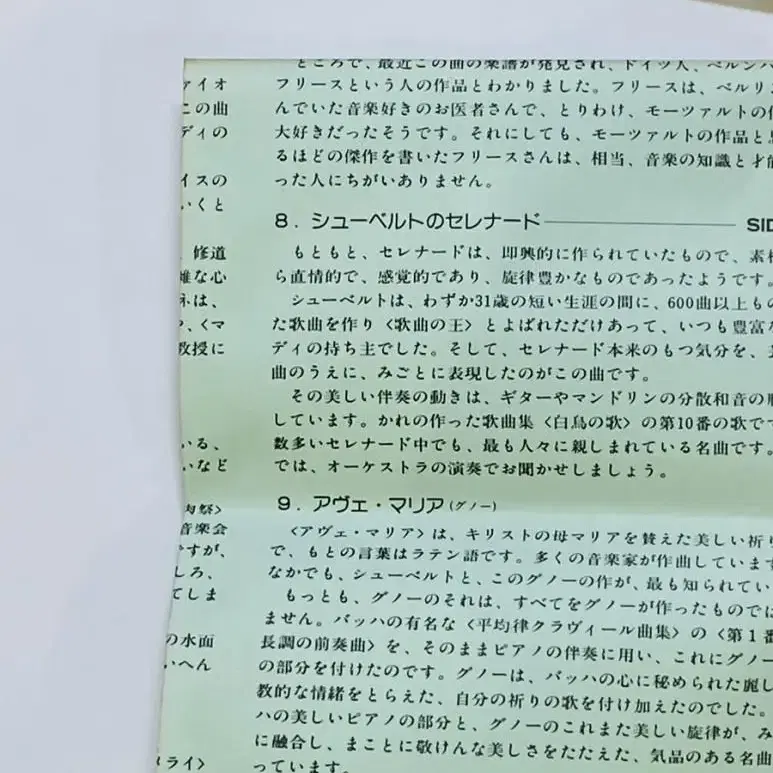 ァイオ
この曲
ディの
イスの
いくと
修道
雑な心
ネは、
や、〈マ
教授に
いる、
いなど
肉祭〉
音楽会
ですが、
しろ、
てしま
の水面
いへん
ライ〉
ところで、最近この曲の楽譜が発見され、ドイツ人、ベルンハ
フリースという人の作品とわかりました。フリースは、ベルリン
んでいた音楽好きのお医者さんで、とりわけ、モーツァルトの作
大好きだったそうです。それにしても、モーツァルトの作品と
るほどの傑作を書いたフリースさんは、相当、音楽の知識と才能
った人にちがいありません。
8. シューベルトのセレナード SID
もともと、セレナードは、即興的に作られていたもので、素朴
ら直情的で、感覚的であり、旋律豊かなものであったようです。
シューベルトは、わずか31歳の短い生涯の間に、600曲以上もの
た歌曲を作り〈歌曲の王〉とよばれただけあって、いつも豊富な
ディの持ち主でした。そして、セレナード本来のもつ気分を、
曲のうえに、みごとに表現したのがこの曲です。
その美しい伴奏の動きは、ギターやマンドリンの分散和音の
しています。かれの作った歌曲集〈白鳥の歌〉の第10番の歌で
数多いセレナード中でも、最も人々に親しまれている名曲です。
では、オーケストラの演奏でお聞かせしましょう。
9. アヴェ・マリア(グノー)
〈アヴェ・マリア〉は、キリストの母マリアを賛えた美しい祈り
で、もとの言葉はラテン語です。多くの音楽家が作曲しています
なかでも、シューベルトと、このグノーの作が、最も知られてい
もっとも、グノーのそれは、すべてをグノーが作ったものでは
ません。バッハの有名な〈平均律クラヴィール曲集〉の〈第1番
長調の前奏曲〉を、そのままピアノの伴奏に用い、これにグノー
の部分を付けたのです。グノーは、バッハの心に秘められた麗し
教的な情緒をとらえた、自分の祈りの歌を付け加えたのでした。
ハの美しいピアノの部分と、グノーのこれまた美しい旋律が、み
に融合し、まことに敬けんな美しさをたたえた、気品のある名曲
っています。